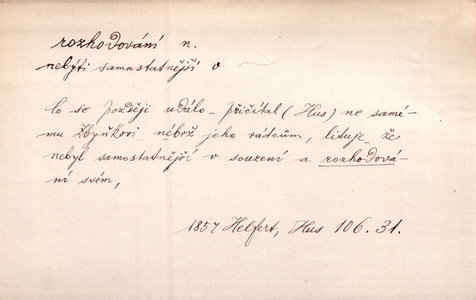 rozhodování n.
nebýti samostatnější v ~
Co se později událo – přičítal (Hus) ne samé-
mu Zbyňkovi nébrž jeho rádcům, lituje, že
nebyl samostatnější v souzení a rozhodová-
ní svém,
1857 Helfert, Hus 106. 31.